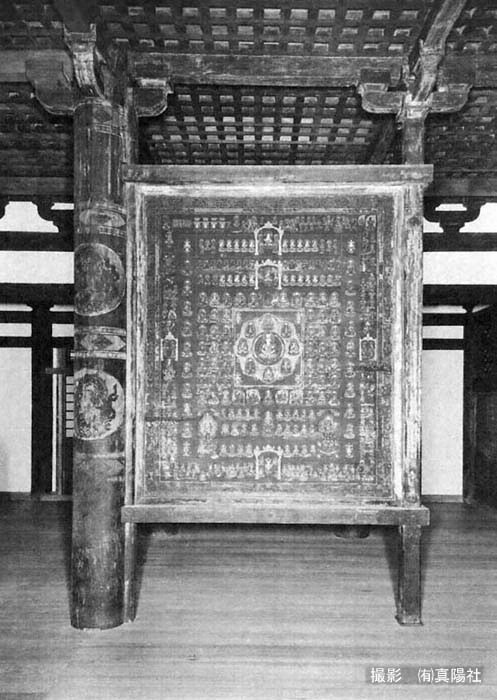 撮影　㈲真陽社